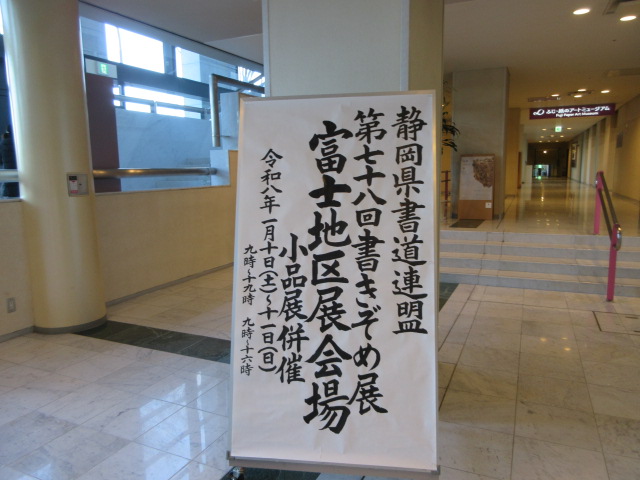 静岡県書道連盟
第七十八回書きぞめ展
富士地区展会場
小品展併催
令和八年一月十日(土)〜十一日(日)
九時〜十九時 九時〜十六時
ふじ・紙のアートミュージアム
Fuji Paper Art Museum